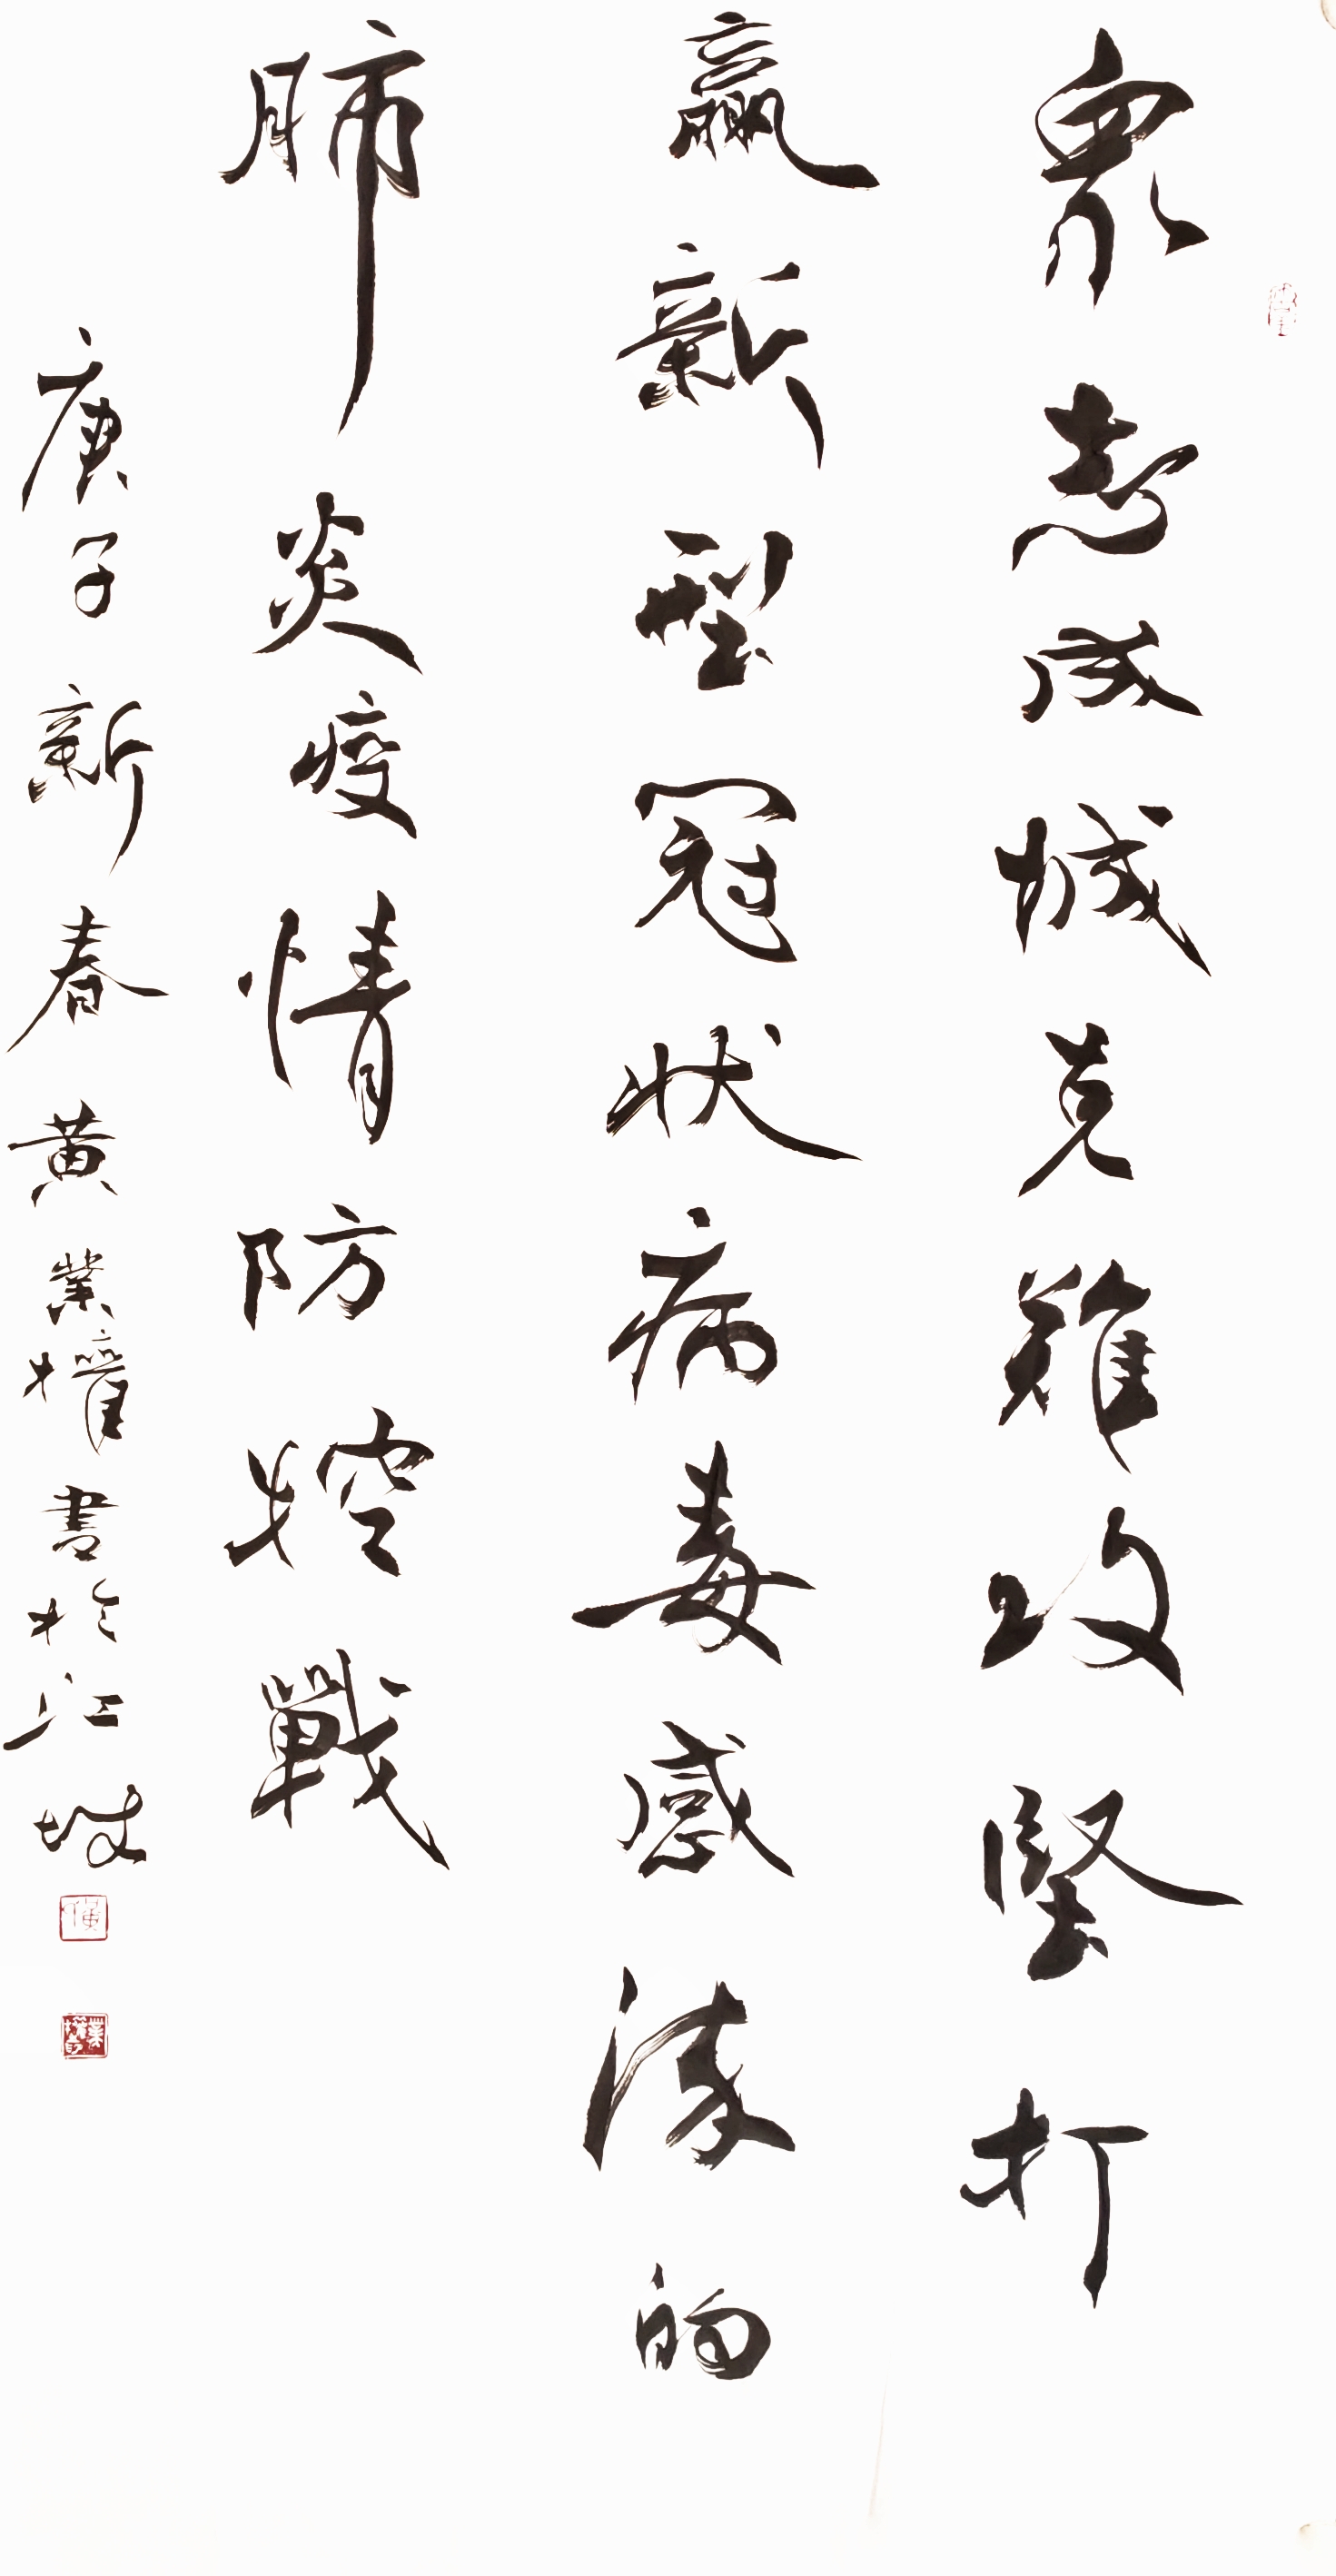 眾志成城克難攻堅打
贏新型冠狀病毒感染的
肺炎疫情防控戰
庚子新春黃業權書於江城